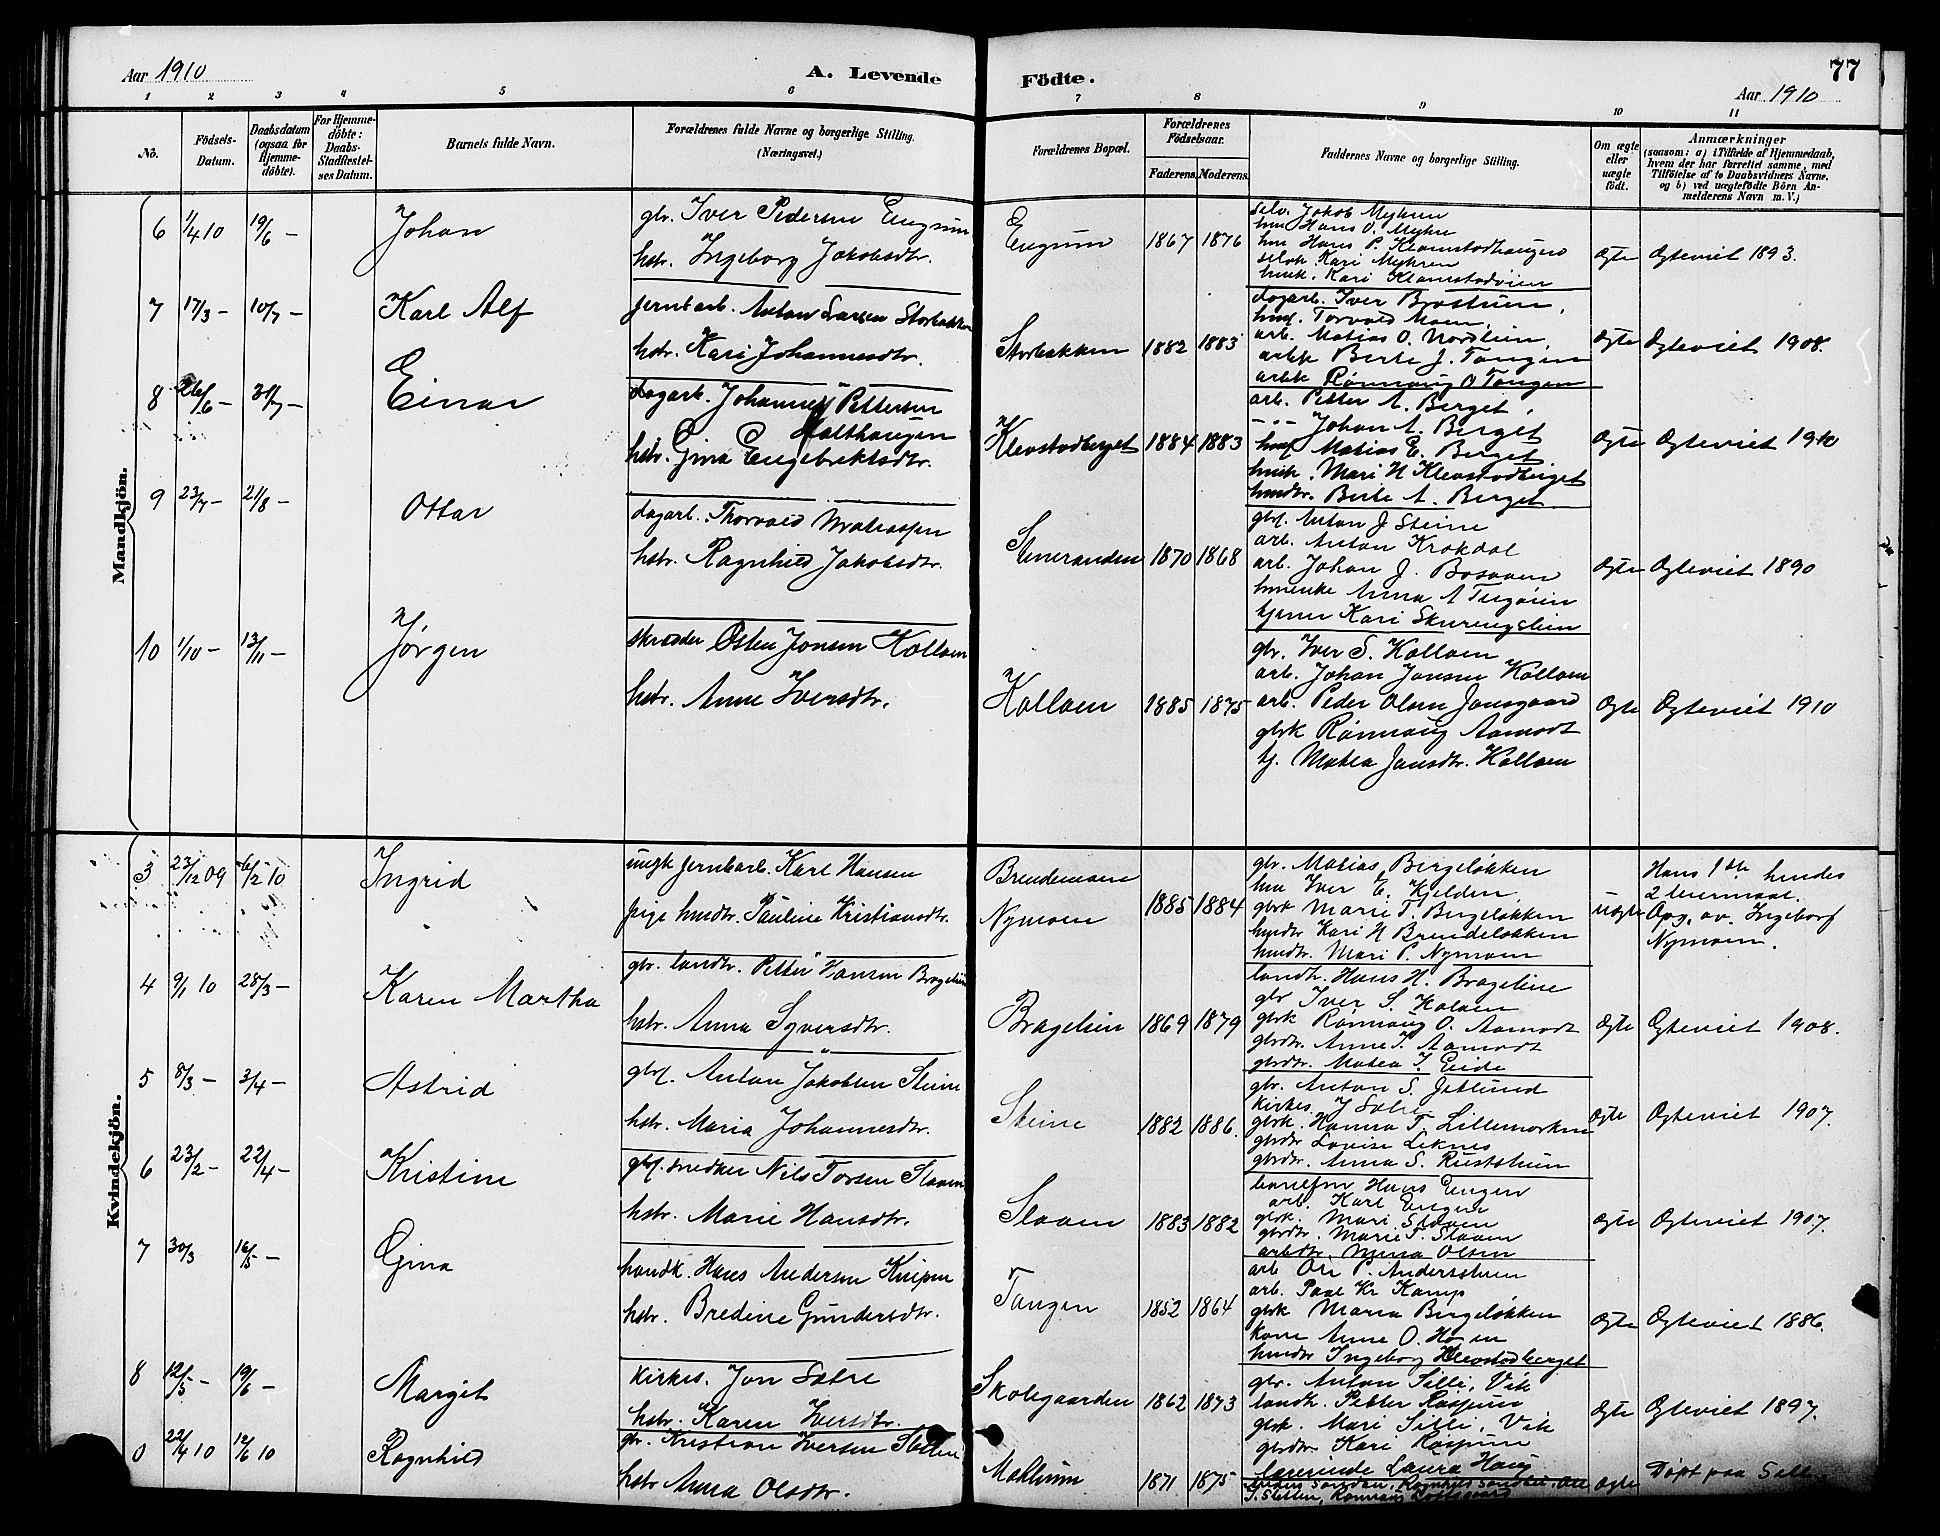 Aar 1910
A. Levende Födte.
77
Aar 1910
1 2 3 4 5 6 7 8 9 10 11
No.
Födsels-Datum.
Daabsdatum (ogsaa for Hjemmedöbte).
For Hjemmedöbte: Daabs-Stadfæstelses Datum.
Barnets fulde Navn.
Forældrenes fulde Navne og borgerlige Stilling. (Næringsvei.)
Forældrenes Bopæl.
Forældrenes Födselsaar.
Faderens. Moderens.
Faddernes Navne og borgerlige Stilling.
Om ægte eller uægte født.
Anmærkninger
(saasom: a) i Tilfælde af Hjemmedaab, hvem der har forrettet samme, med Tilføielse af to Daabsvidners Navne, og b) ved uægtefödte Börn Anmelderens Navn m. V.)
Mandkjön.
6 1/4 10 19/6 — Johan
gbr. Iver Pedersen Engum
hstr. Ingeborg Jakobsdtr.
Engum 1867 1876
selv. Jakob Myhren
hm Hans O. Myhre
hm Hans P. Klomstadhaugen
selvk. Kari Myhren
hmk. Kari Klomstadvien
Ægte Ægteviet 1893.
7 17/3 — 10/7 — Karl Alf
jernbarb. Anton Larsen Storbakken
hstr. Kari Johannesdtr.
Storbakken 1882 1883
dagarb. Iver Brostuen,
hmf. Torvald Moen,
arb. Matias O. Nordlien,
arbk Berte J. Tangen
arbk Rønnaug O Tangen
Ægte Ægteviet 1908.
8 26/6 — 31/7 — Einar
dagarb. Johannes Pettersen Holthaugen
hstr. Gina Engebrektsdtr.
Klevstadberget 1884 1883
arb. Petter A. Berget,
—"— Johan A. Berget
hmf Matias E. Berget
hmk. Mari N Klevstadberget
hmdtr. Berte A. Berget
Ægte Ægteviet 1910
9 23/7 — 21/8 — Ottar
dagarb. Thorvald Mateassen
hstr. Ragnhild Jakobsdtr.
Steneranden 1870 1868
gbf. Anton J Steine
arb. Anton Krokdal
arb. Johan J. Bosaaen
hmenke Anna A
tjener Kari Skuringslien
Ægte Ægteviet 1890
10 1/10 — 13/11 — Jørgen
skræder Østen Jonsen Kolloen
hstr. Anne Iversdtr.
Kolloen 1885 1875
gbr. Iver S. Kolloen
arb. Johan Jonsen Kolloen
arb. Peder Olsen Jonsgaard
gbrk Rønnaug Aamodt
tj. Matea Jonsdtr. Kolloen
Ægte Ægteviet 1910
Kvindekjön.
3 23/12 09 6/2 10 Ingrid
ungk jernbarb. Karl Hansen
pige hmdtr. Pauline Kristiansdtr.
Brendemoen
Nymoen 1885 1884
gbr. Matias Bergeløkken
hm Iver E. Kjelden,
gbrk Marie T. Bergeløkken
hmdtr Kari N Brendeløkken
hmdtr. Mari P. Nymoen
uægte
Hans 1ste hendes
2 leiermaal.
Opg. av Ingeborg
Nymoen.
4 9/1 10 28/3 — Karen Martha
gbr. landh. Petter Hansen Bragelien
hstr. Anna Syversdtr.
Bragelien 1869 1879
landh. Hans H. Bragelien
gbr Iver S. Koloen
gbrk Rønnaug O. Aamodt
gbrdtr. Anne T. Aamodt
gbrdtr. Matea I. Eide
Ægte Ægteviet 1908.
5 8/3 — 3/4 — Astrid
gbf. Anton Jakobsen Steine
hstr. Maria Johannesdtr.
Steine 1882 1886.
gbr. Anton S. Jetlund
Kirkes. J Solre
gbrk. Hanna T. Lillemorken
gbrdtr Lovise Leknes
gbrdtr. Anna S. Ruststuen
Ægte Ægteviet 1907.
6 23/2 — 22/4 — Kristine
gbf. snedker Nils Torsen Slaaen
hstr. Marie Hansdtr.
Slaaen 1883 1882
Hans Engen
arb. Karl Engen
gbrk. Mari Slaaen
gbrdtr. Marie T. Slaaen
arbdtr. Olsen
Ægte Ægteviet 1907.
7 30/3 16/5 — Gina
handk. Hans Andersen Knipen
hstr. Bredine Gundersdtr.
Tangen 1852 1864
arb Ole P. Andersstuen
arb. Paal Kr Kamp
gbrk Maria Bergeløkken
kone Anne O. Moen
hmdtr Ingeborg Klevstadberget
Ægte Ægteviet 1886.
8 12/5 — 19/6 — Margit
Kirkes. Jon Solre
hstr. Karen Iversdtr.
Skolegaarden 1862 1873
gbr. Anton Silli, Vik
landh. Petter Raspuur
gbrk. Mari Silli, Vik
gbrdtr Kari Raspuur
Lærerinde Laura Haug
Ægte Ægteviet 1897.
22/4 10 12/6 10 Ragnhild
gbr. Kristian Iversen Sletten
hstr. Anna Olsdtr.
Mellum 1871 1875
Sletten, Rønnaug
Ægte Døpt paa Sell.